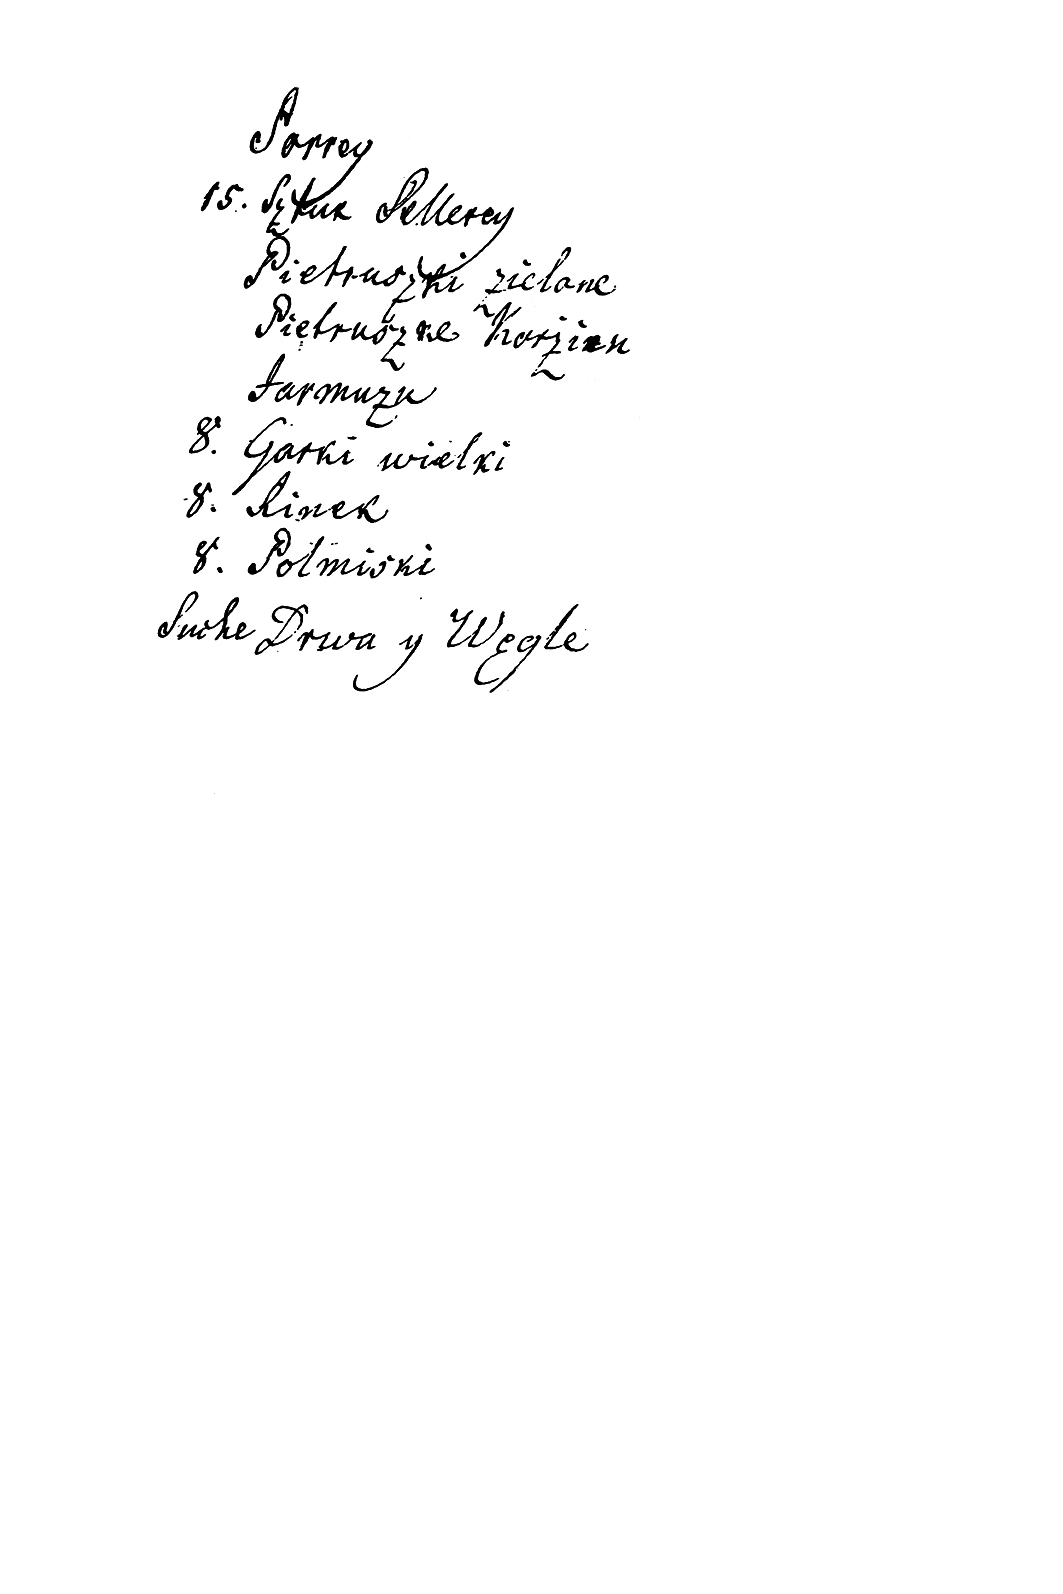 Porrey
15. Sztuk Sellerey
Pietruszki zielone
Pietruszke Korzien
Jarmuzu
8. Garki wielki
8. Rinek
8. Polmiski
Suche Drwa y Węgle